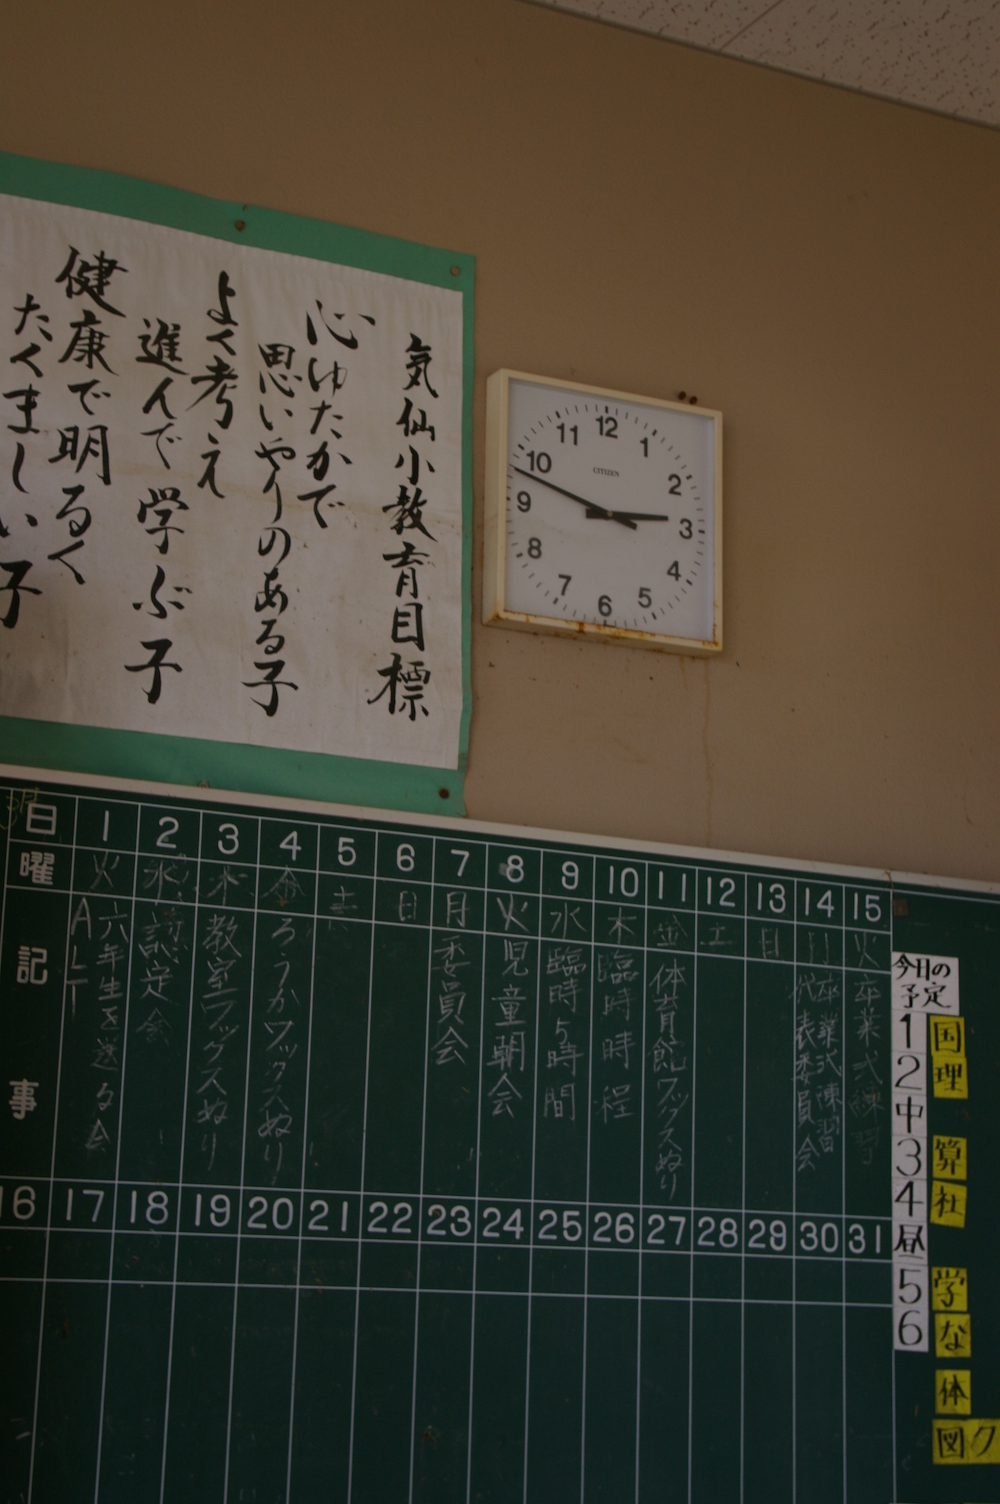 気仙小教育目標
心ゆたかで
思いやりのある子
よく考え
進んで学ぶ子
健康で明るく
たくましい子
12
1
2
3
4
5
6
7
8
9
10
11
CITIZEN
日 1 2 3 4 5 6 7 8 9 10 11 12 13 14 15
曜 火 水 木 金 土 日 月 火 水 木 金 土 日 月 火
記事
ALT
六年生を送る会
認定会
教室ワックスぬり
ろうかワックスぬり
委員会
児童朝会
臨時5時間
臨時時程
体育館ワックスぬり
卒業式練習
代表委員会
卒業式練習
16 17 18 19 20 21 22 23 24 25 26 27 28 29 30 31
今日の
予定
1 国
2 理
中
3 算
4 社
昼
5 学
6 な
体
図ク